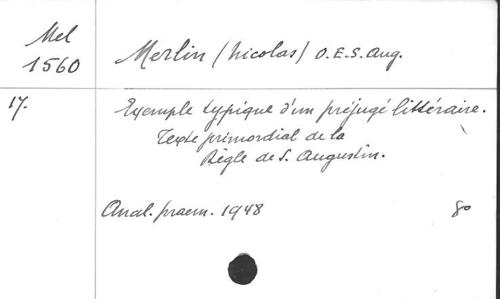 Mel
1560
Merlin (Nicolas) O.E.S. Aug.
17.
Exemple typique d'un préjugé littéraire.
Texte primordial de la
Règle de S. Augustin.
Anal. praem. 1948
8o